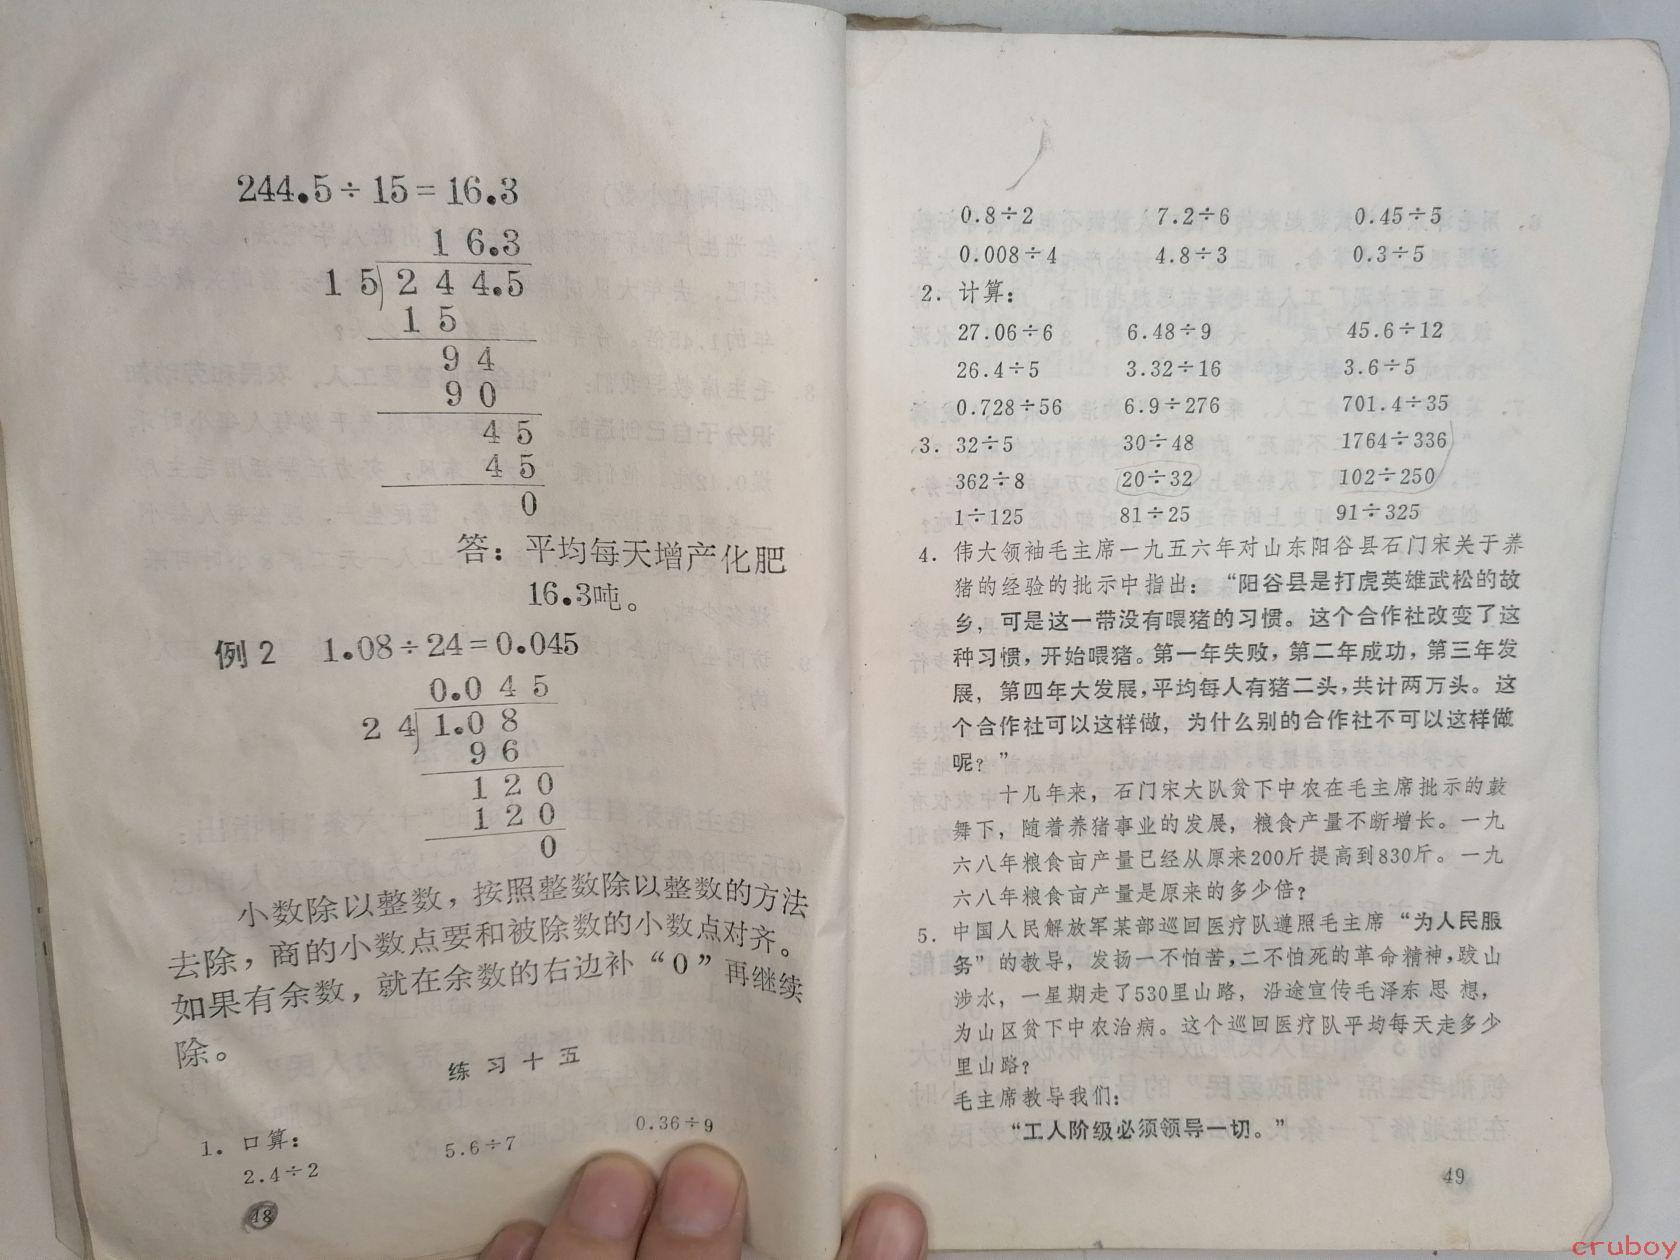 244.5÷15=16.3
16.3
15 244.5
15
94
90
45
45
0
答：平均每天增产化肥
16.3吨。
例2 1.08÷24=0.045
0.045
24 1.08
96
120
120
0
小数除以整数，按照整数除以整数的方法
去除，商的小数点要和被除数的小数点对齐。
如果有余数，就在余数的右边补“0”再继续
除。
练习十五
1. 口算：
2.4÷2 5.6÷7 0.36÷9
48
0.8÷2 7.2÷6 0.45÷5
0.008÷4 4.8÷3 0.3÷5
2. 计算：
27.06÷6 6.48÷9 45.6÷12
26.4÷5 3.32÷16 3.6÷5
0.728÷56 6.9÷276 701.4÷35
3. 32÷5 30÷48 1764÷336
362÷8 20÷32 102÷250
1÷125 81÷25 91÷325
4. 伟大领袖毛主席一九五六年对山东阳谷县石门宋关于养
猪的经验的批示中指出：“阳谷县是打虎英雄武松的故
乡，可是这一带没有喂猪的习惯。这个合作社改变了这
种习惯，开始喂猪。第一年失败，第二年成功，第三年发
展，第四年大发展，平均每人有猪二头，共计两万头。这
个合作社可以这样做，为什么别的合作社不可以这样做
呢？”
十几年来，石门宋大队贫下中农在毛主席批示的鼓
舞下，随着养猪事业的发展，粮食产量不断增长。一九
六八年粮食亩产量已经从原来200斤提高到830斤。一九
六八年粮食亩产量是原来的多少倍？
5. 中国人民解放军某部巡回医疗队遵照毛主席“为人民服
务”的教导，发扬一不怕苦，二不怕死的革命精神，跋山
涉水，一星期走了530里山路，沿途宣传毛泽东思想，
为山区贫下中农治病。这个巡回医疗队平均每天走多少
里山路？
毛主席教导我们：
“工人阶级必须领导一切。”
49
cruboy